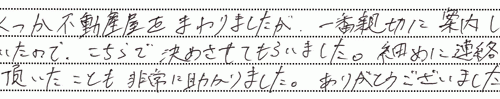 くつか不動産屋をまわりましたが、一番親切に案内し
いたので、こちらで決めさせてもらいました。細めに連絡
頂いたことも非常に助かりました。ありがとうございました